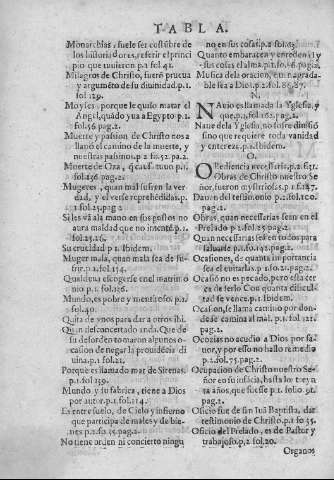 TABLA.
Monarchias, suele ser costũbre de
los historiadores, referir el princi
pio que tuuieron p.1 fol.41.
Milagros de Christo, fuerõ prueua
y argumẽto de su diuinidad. p.1
fol 129.
Moyses porque le quiso matar el
Angel, quãdo yua a Egypto p.1
fol.56 pag.2.
Muerte y passion de Christo nos a
llanó el camino de la muerte, y
nuestras passiões. p.2 fo.52.pa.2.
Muerte de Oza, p.1.
fol.236 pag.2.
Mugeres, quan mal sufren la ver
dad. y el verse reprehẽdidas. p.
1 fol.25.pag 2
Si les và a la mano en sus gustos no
aura maldad que no intentẽ. p.1
fol.25.26.
Su crueldad p 1. Ibidem.
Muger mala, quan mala sea de su-
frir. p.2 fol.154.
Qual deua escogerse en el matrimo
nio p.1. fol.126.
Mundo, es pobre y mentiroso. p.2
fol.40.
Quita de vnos para dar a otros ibi.
Quan desconcertado anda. Que de
su desorden tomaron algunos o-
casion de negar la prouidẽcia di
uina p.1. fol.21.
Porque es llamado mar de Sirenas.
p.1 fol 139.
Mundo, y su fabrica, tiene a Dios
por autor. p.1. fol.214.
Es entresuelo, de Cielo y infierno
que participa de males y de bie-
nes p.2 fol.35. pag.2.
No tiene orden ni concierto ningu
no en sus cosas. p.2 fol.
Quanto embaracen y enreden
sus cosas el alma. p.2. fo.56. pag.2.
Musica de la oracion, quan agrada-
ble sea a Dios. p.2 fol.86.87.
N.
NAuio es llamada la Yglesia, y
que, p.1. fol.162. pag.2.
Naue de la Yglesia, no sufre diuisiõ
sino que requiere toda vnidad
y entereza. p.1. Ibidem.
O.
OBediencia necessaria. p.2. f.31.
Obras de Christo nuestro Se
ñor, fueron mysteriosas. p.1 f.187.
Dauan del testimonio p.2. fol.100.
pag.2.
Obras, quan necessarias sean en el
Prelado p 2. fol.22. pag.2.
Quan necessarias seã en todos para
saluarse p.1. fo.142. pag.2.
Ocasiones, de quanta importancia
sea el euitarlas. p.1 fo.21. pag.2.
Ocasiõ no es pecado, pero està cer
ca de serlo Con quanta dificul-
tad se vence. p.1. Ibidem.
Ocasion, se llama camino por don-
de se camina al mal. p.1 fol. 121.
pag.2.
Ocozias no acudio a Dios por fa-
uor, y por esso no hallo remedio
p.1 fol.75. pag.2.
Ocupacion de Christo nuestro Se-
ñor en su infãcia, hasta los treyn
ta años, que fuesse p.1 fol.50 92.
pag.2.
Oficio fue de san Iuã Baptista, dar
testimonio de Christo. p.1 fo 35.
Oficio del Prelado, es de Pastor y
trabajoso. p.2 fol.20.
Organos